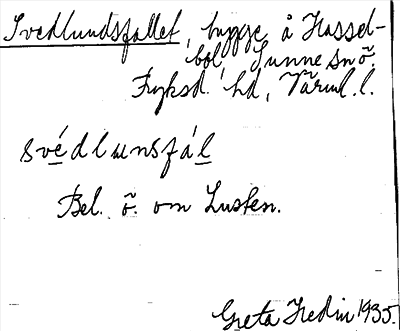 Svedlundsfallet, bygge å Hassel-
bol, Sunne sn ö.
Fryksd. hd, Värml. l.
svédlunsfál
Bel. ö. om Lusten.
Greta Hedin 1935.